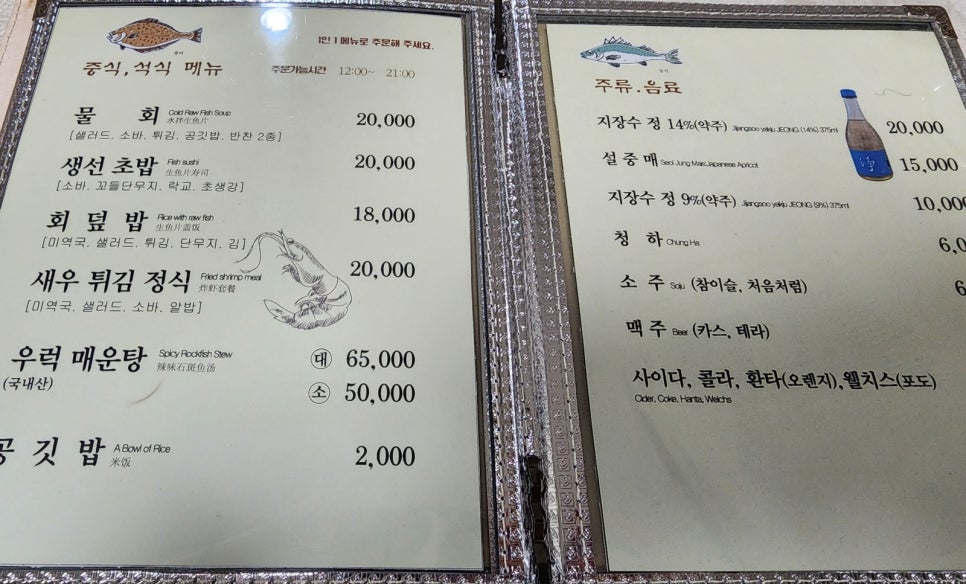 1인 1메뉴로 주문해 주세요.
중식, 석식 메뉴 주문가능시간 12:00~ 21:00
물 회 Cold Raw Fish Soup 20,000
水拌生鱼片
[샐러드. 소바. 튀김. 공깃밥. 반찬 2종]
생선 초밥 Fish sushi 20,000
生鱼片寿司
[소바. 꼬들단무지. 락교. 초생강]
회 덮 밥 Rice with raw fish 18,000
生鱼片盖饭
[미역국. 샐러드. 튀김. 단무지. 김]
새우 튀김 정식 Fried shrimp meal 20,000
炸虾套餐
[미역국. 샐러드. 소바. 알밥]
우럭 매운탕 Spicy Rockfish Stew 대 65,000
辣味石斑鱼汤
(국내산) 소 50,000
공 깃 밥 A Bowl of Rice 2,000
米饭
주류.음료
지장수 정 14%(약주) Jiangsoo yakju JEONG (14%) 375ml 20,000
설 중 매 Seol Jung Mae Japanese Apricot 15,000
지장수 정 9%(약주) Jiangsoo yakju JEONG (9%) 375ml 10,000
청 하 Chung Ha 6,0
소 주 Soju (참이슬, 처음처럼) 6
맥 주 Beer (카스, 테라)
사이다, 콜라, 환타(오렌지),웰치스(포도)
Cider, Coke, Hanta, Welchs